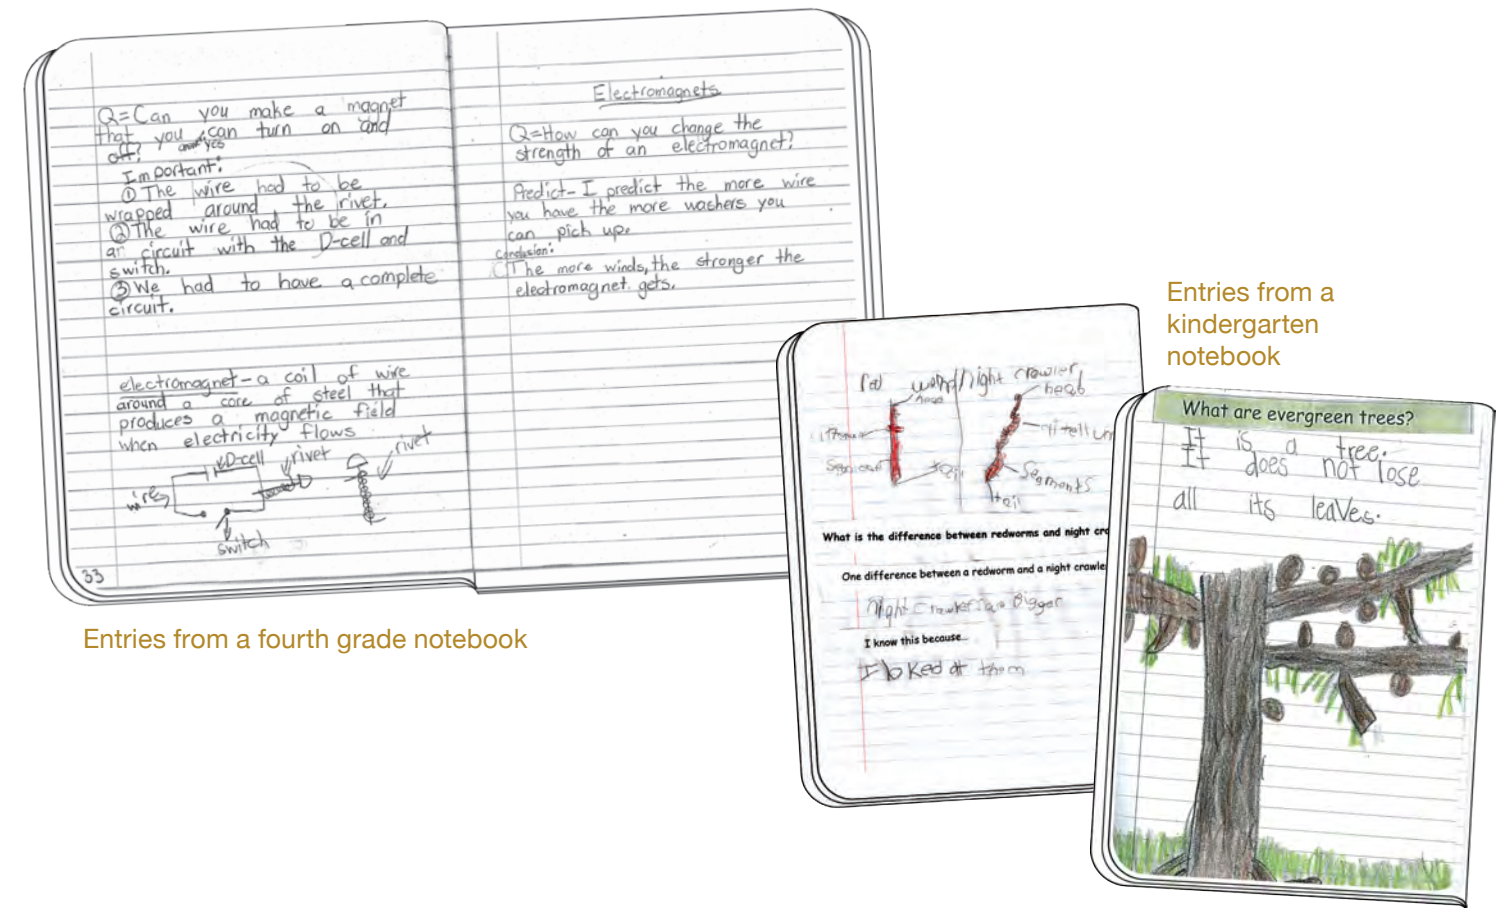 Q=Can you make a magnet
that you can turn on and
off? yes
Important:
① The wire had to be
wrapped around the rivet.
② The wire had to be in
a circuit with the D-cell and
switch.
③ We had to have a complete
circuit.
electromagnet - a coil of wire
around a core of steel that
produces a magnetic field
when electricity flows
D-cell
rivet
rivet
wire
switch
33
Electromagnets
Q=How can you change the
strength of an electromagnet?
Predict- I predict the more wire
you have the more washers you
can pick up.
Conclusion:
The more winds, the stronger the
electromagnet gets.
Entries from a fourth grade notebook
Entries from a
kindergarten
notebook
red worm/night crawler
head
heab
Segments
tail
tail
What is the difference between redworms and night cro
One difference between a redworm and a night crawle
night Crawlers are Bigger
I know this because...
I loked at them
What are evergreen trees?
It is a tree.
It does not lose
all its leaves.